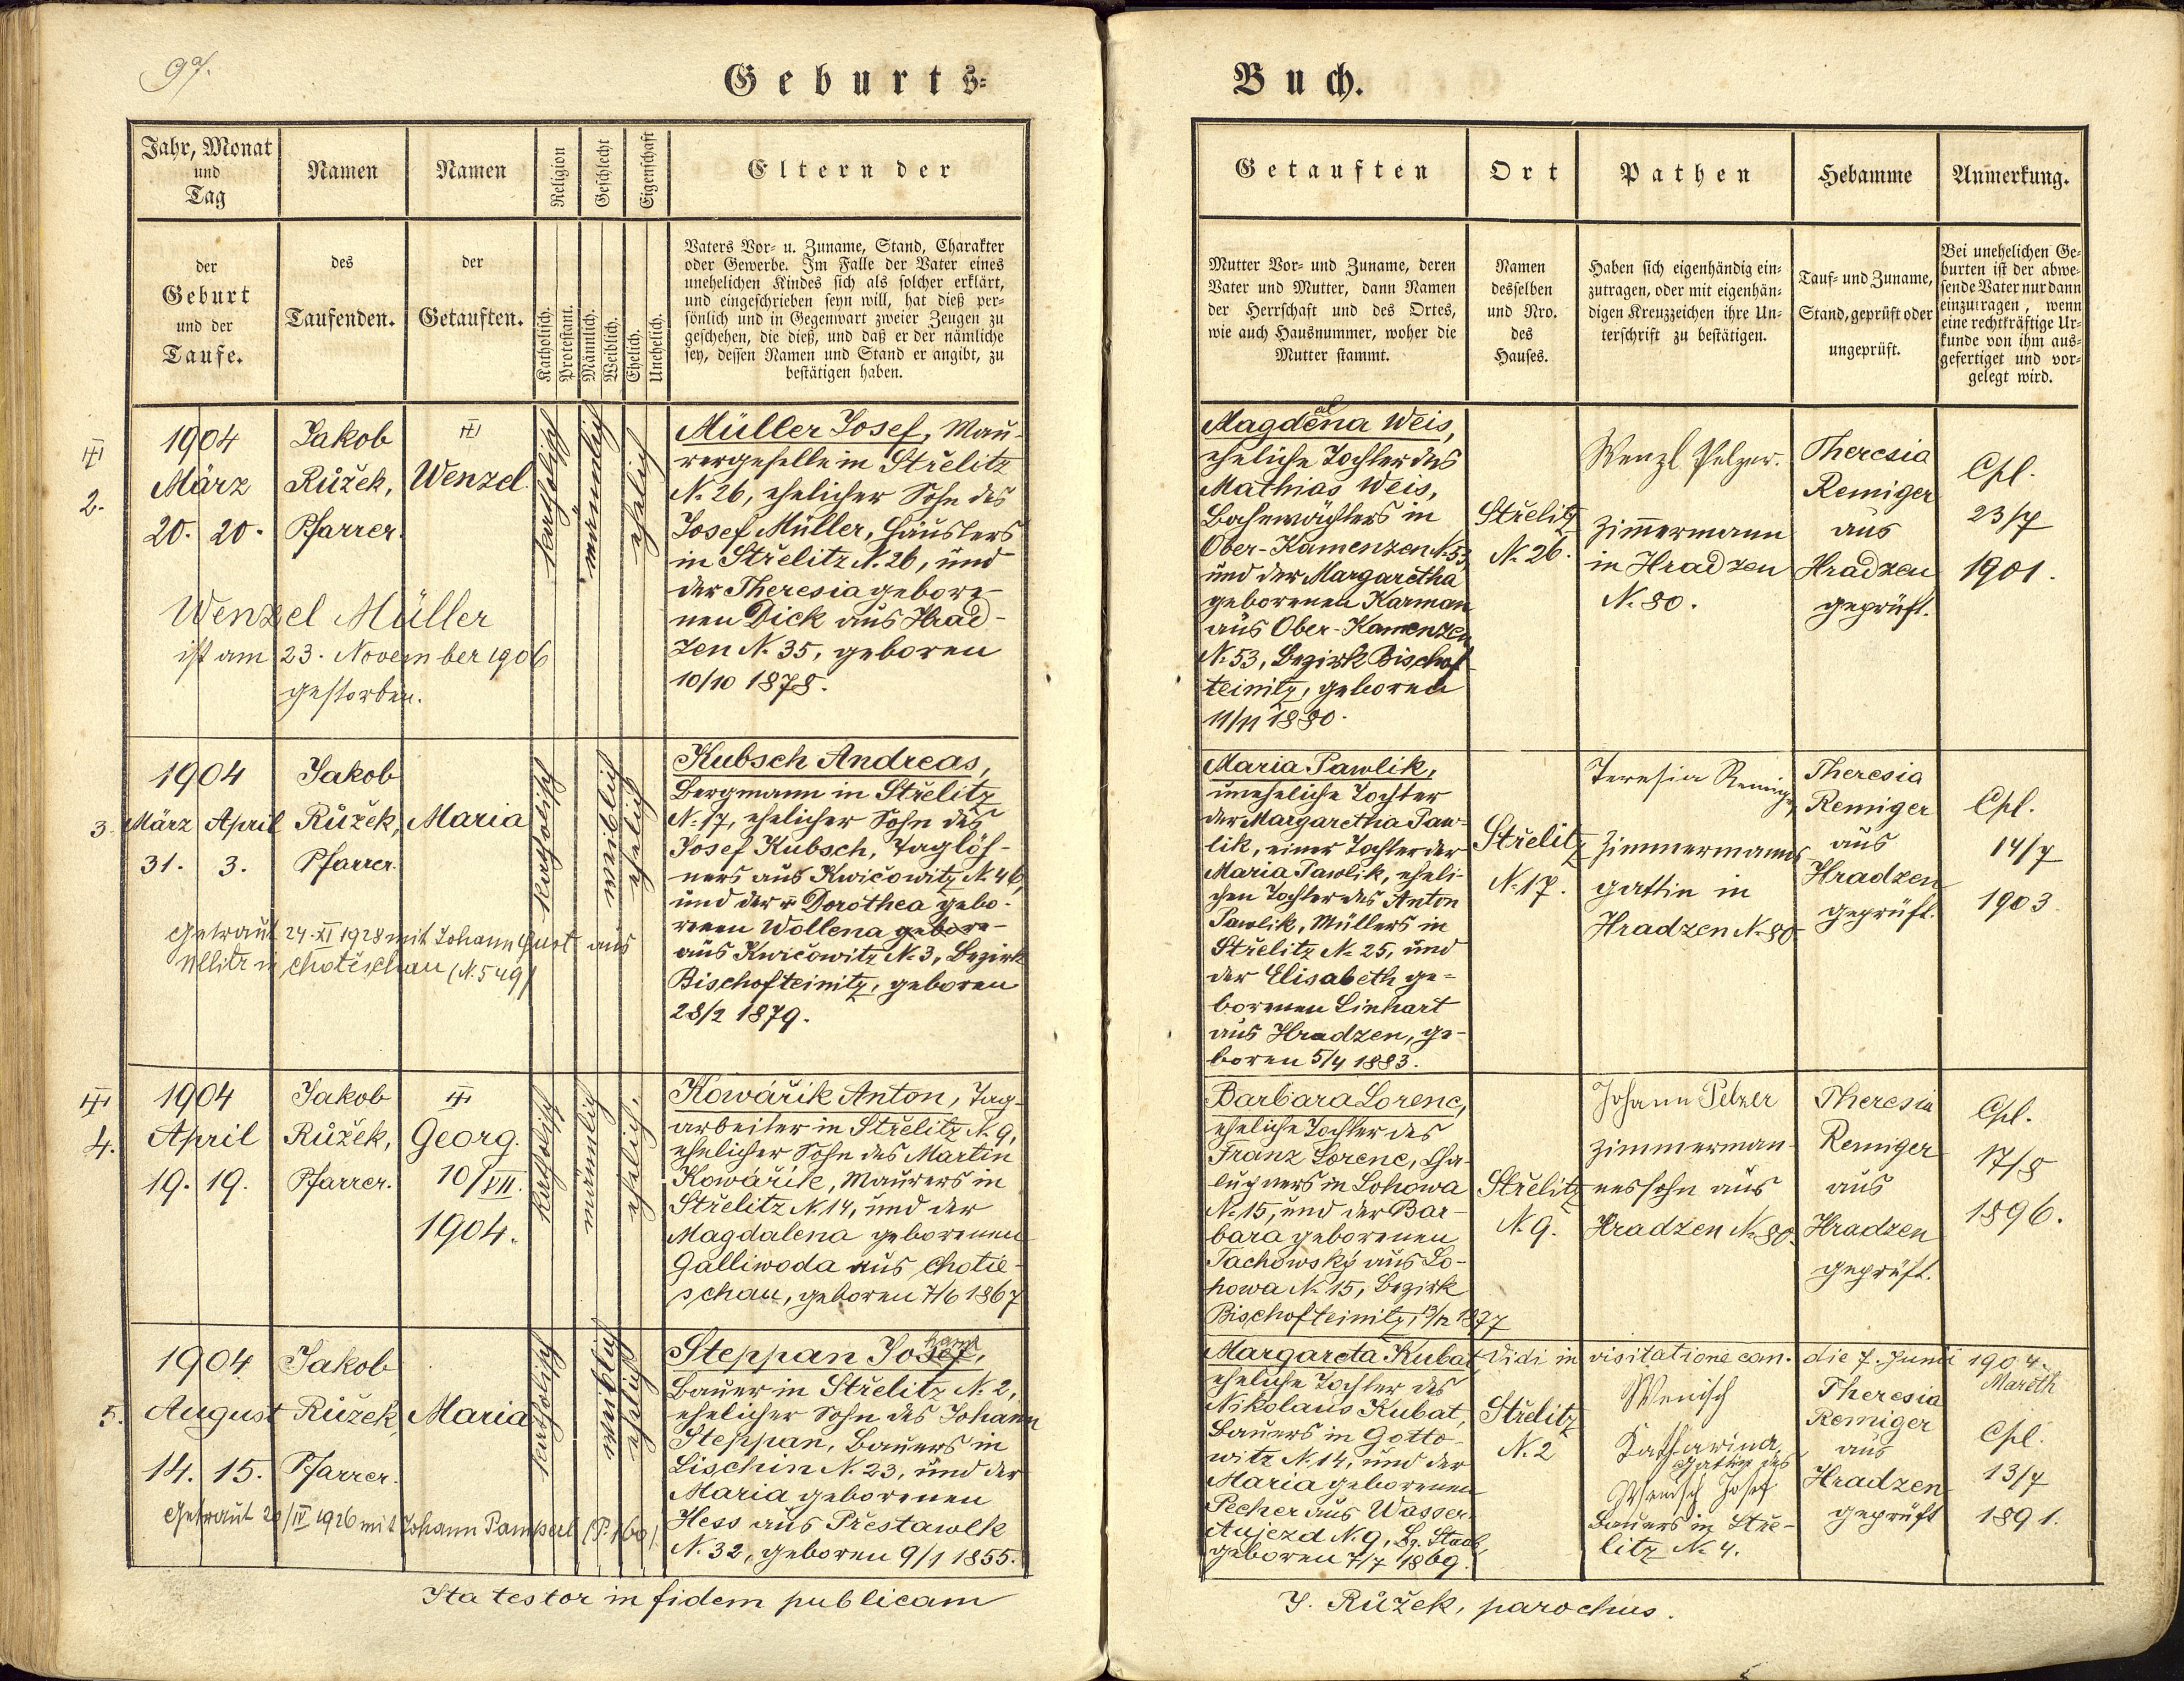 97.
Geburts-
Buch.
Jahr, Monat
und
Tag
Namen
Namen
Religion
Geschlecht
Eigenschaft
Eltern der
der
Geburt
und der
Taufe.
des
Taufenden.
der
Getauften.
Katholisch.
Protestant.
Männlich.
Weiblich.
Ehelich.
Unehelich.
Vaters Vor- u. Zuname, Stand, Charakter
oder Gewerbe. Im Falle der Vater eines
unehelichen Kindes sich als solcher erklärt,
und eingeschrieben seyn will, hat dieß per-
sönlich und in Gegenwart zweier Zeugen zu
geschehen, die dieß, und daß er der nämliche
sey, dessen Namen und Stand er angibt, zu
bestätigen haben.
Getauften
Ort
Pathen
Hebamme
Anmerkung.
Mutter Vor- und Zuname, deren
Vater und Mutter, dann Namen
der Herrschaft und des Ortes,
wie auch Hausnummer, woher die
Mutter stammt.
Namen
desselben
und Nro.
des
Hauses.
Haben sich eigenhändig ein-
zutragen, oder mit eigenhän-
digen Kreuzzeichen ihre Un-
terschrift zu bestätigen.
Tauf- und Zuname,
Stand, geprüft oder
ungeprüft.
Bei unehelichen Ge-
burten ist der abwe-
sende Vater nur dann
einzutragen, wenn
eine rechtkräftige Ur-
kunde von ihm aus-
gefertiget und vor-
gelegt wird.
2.
1904
März
20. 20.
Jakob
Růžek,
Pfarrer.
Wenzel
katholisch
männlich
ehelich
Müller Josef, Mau-
rergeselle in Střelitz
N. 26, ehelicher Sohn des
Josef Müller, Häuslers
in Střelitz N. 26, und
der Theresia gebore-
nen Dick aus Hrad-
zen N. 35, geboren
10/10 1878.
Wenzel Müller
ist am 23. November 1906
gestorben.
Magdalena Weis,
eheliche Tochter des
Mathias Weis,
Bahnwächters in
Ober-Kamenzen N. 53
und der Margaretha
geborenen Karman
aus Ober-Kamenzen
N. 53, Bezirk Bischof-
teinitz, geboren
11/11 1880.
Střelitz
N. 26.
Wenzl Pelzer.
Zimmermann
in Hradzen
N. 80.
Theresia
Remiger
aus
Hradzen
geprüft.
Cpl.
23/7
1901.
3.
1904
März April
31. 3.
Jakob
Růžek,
Pfarrer.
Maria
katholisch
weiblich
ehelich
Kubsch Andreas,
Bergmann in Střelitz
N. 17, ehelicher Sohn des
Josef Kubsch, Taglöh-
ners aus Kwičowitz N. 46,
und der Dorothea gebo-
renen Wollena gebore-
aus Kwičowitz N. 3, Bezirk
Bischofteinitz, geboren
28/2 1879.
Getraut 24. XI 1928 mit Johann Gust aus
in Chotieschau (N. 549)
Maria Pawlik,
uneheliche Tochter
der Margaretha Paw-
lik, einer Tochter der
Maria Pawlik, eheli-
chen Tochter des Anton
Pawlik, Müllers in
Střelitz N. 25, und
der Elisabeth ge-
borenen Linhart
aus Hradzen, ge-
boren 5/4 1883.
Střelitz
N. 17.
Teresia Remiger
Zimmermanns
gattin in
Hradzen N. 80
Theresia
Remiger
aus
Hradzen
geprüft.
Cpl.
14/7
1903.
4.
1904
April
19. 19.
Jakob
Růžek,
Pfarrer.
Georg.
10/VII.
1904.
katholisch
männlich
ehelich.
Kowářik Anton, Tag-
arbeiter in Střelitz N. 9,
ehelicher Sohn des Martin
Kowářik, Maurers in
Střelitz N. 14, und der
Magdalena geborenen
Galliwoda aus Chotie-
schau, geboren 7/6 1867
Barbara Lorenc,
eheliche Tochter des
Franz Lorenc, Cha-
lupners in Lohowa
N. 15, und der Bar-
bara geborenen
Tachowský aus Lo-
howa N. 15, Bezirk
Bischofteinitz, 13/12 1877
Střelitz
N. 9.
Johann Pelzer
Zimmerman-
nessohn aus
Hradzen N. 80.
Theresia
Remiger
aus
Hradzen
geprüft.
Cpl.
17/8
1896.
5.
1904
August
14. 15.
Jakob
Růžek,
Pfarrer.
Maria
katholisch
weiblich
ehelich
hann
Steppan Josef,
Bauer in Střelitz N. 2,
ehelicher Sohn des Johann
Steppan, Bauers in
Lischin N. 23, und der
Maria geborenen
Hess aus Přestawlk
N. 32, geboren 9/1 1855.
Getraut 20/IV 1926 mit Johann Pamperl (P. 160).
Margareta Kubat,
eheliche Tochter des
Nikolaus Kubat,
Bauers in Gotto-
witz N. 14, und der
Maria geborenen
Pecher aus Wasser-
Aujezd N. 9, Bz. Staab,
geboren 7/7 1869.
Vidi in visitatione can. die 7. Junii 1904.
Mareth
Střelitz
N. 2
Wenisch
Katharina,
Gattin des
Wenisch Josef
Bauers in Stře-
litz N. 4.
Theresia
Remiger
aus
Hradzen
geprüft
Cpl.
13/7
1891.
Ita testor in fidem publicam
J. Růžek, parochus.